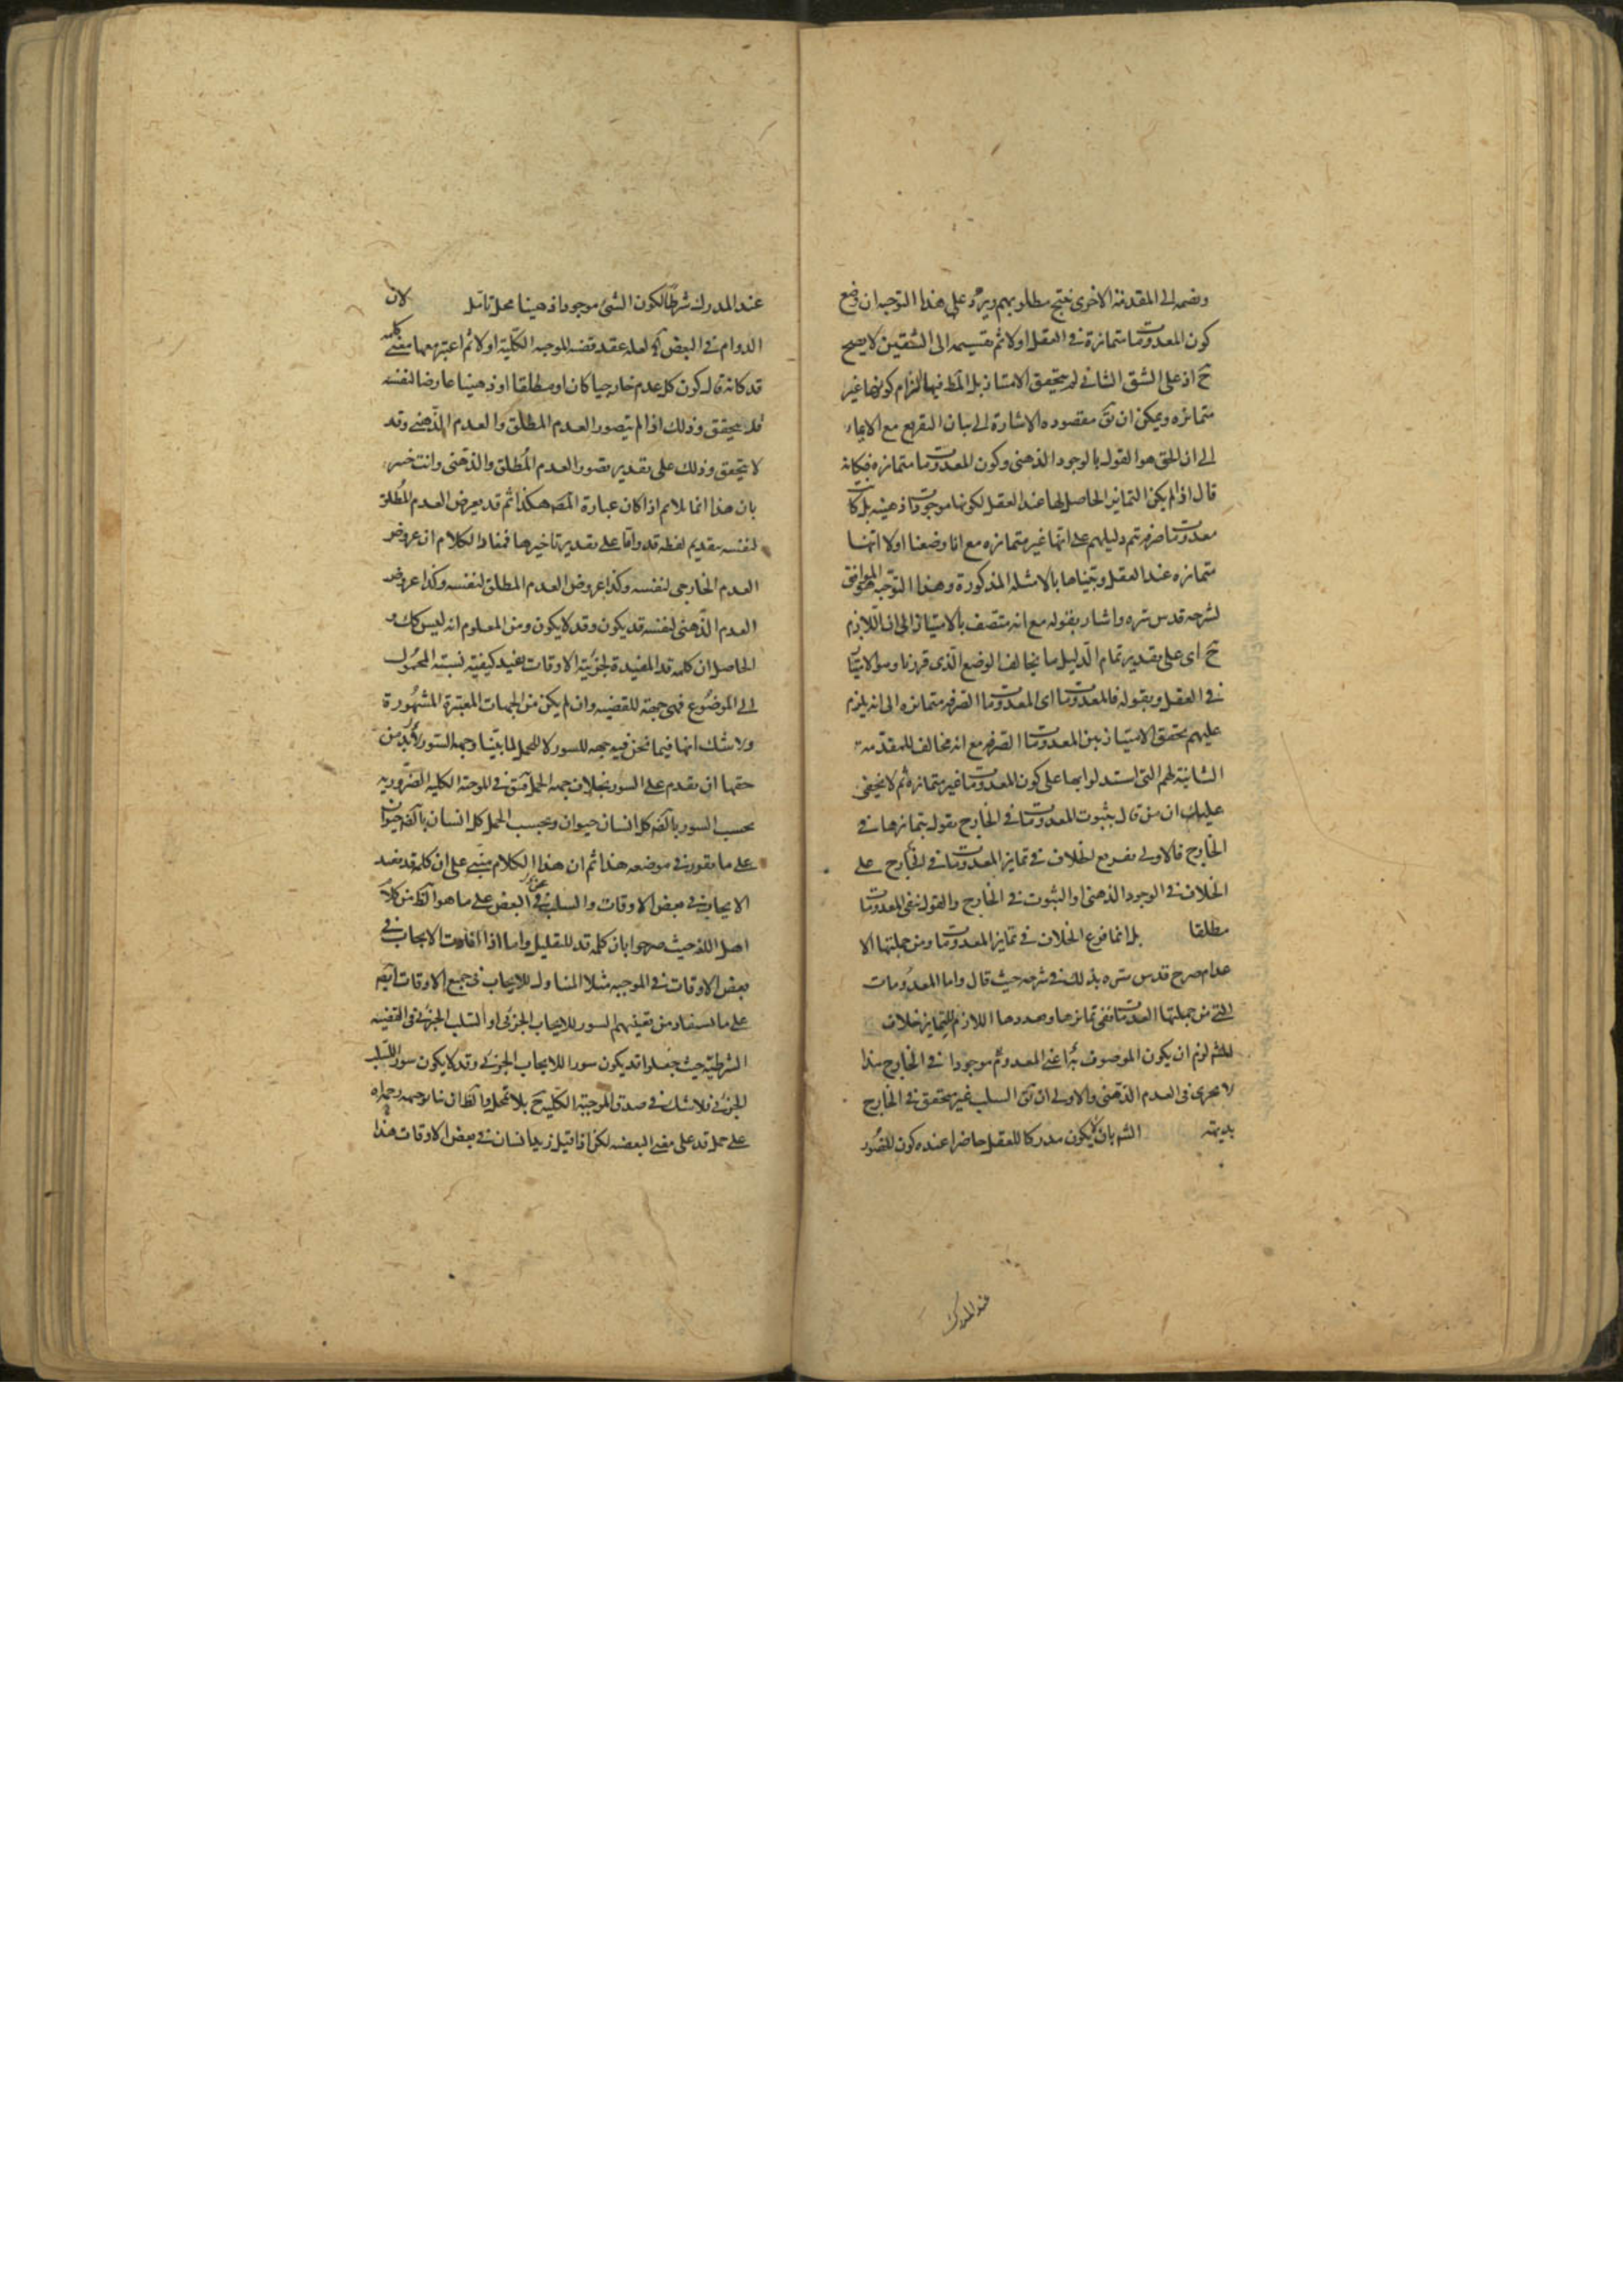 وضمه الى المقدمة الاخرى ينتج مطلوبهم ويرد على هذا التوجيه ان وضع
كون المعدومات متمايزة في العقل اولا ثم تقسيمه الى الشقين لا يصح
ح اذ على الشق الثاني لم يتحقق الامتياز بل المط فيها الزام كونها غير
متمايزه ويمكن ان يق مقصوده الاشارة الى بيان التفريع مع الايماء
الى ان الحق هو القول بالوجود الذهني وكون المعدومات متمايزه فكانه
قال اذا لم يكن التمايز الحاصل لها عند العقل لكونها موجودات ذهنيه بل كانت
معدومات صرفه تم دليلهم على انها غير متمايزه مع انا وضعنا اولا انها
متمايزه عند العقل وبيناها بالامثله المذكورة وهذا التوجيه هو الموافق
لشرحه قدس سره واشار بقوله مع انه متصف بالامتياز الى ان اللازم
ح اى على تقدير تمام الدليل ما يخالف الوضع الذى قررنا وهو الامتياز
في العقل وبقوله فالمعدومات اى المعدومات الصرفه متمايزه الى انه يلزم
عليهم تحقق الامتياز بين المعدومات الصرفه مع انه مخالف للمقدمة
الثانية لهم التى استدلوا بها على كون المعدومات غير متمايزه ثم لا يخفى
عليك ان من قال بثبوت المعدومات في الخارج يقول بتمايزها في
الخارج فالاولى تفريع الخلاف في تمايز المعدومات في الخارج على
الخلاف في الوجود الذهنى او الثبوت في الخارج والقول بنفى المعدومات
مطلقا بل انما فرع الخلاف في تمايز المعدومات ومن جملتها الا
عدام صرح قدس سره بذلك في شرحه حيث قال واما المعدومات
التي من جملتها العدمات ففي تمايزها وهدوها اللازم للتمايز خلاف
لزم ان يكون الموصوف بها اعنى المعدوم موجودا في الخارج هذا
لا يجرى فى العدم الذهنى والاولى ان يق السلب غير متحقق في الخارج
بديهة بان لا يكون مدركا للعقل حاضرا عنده كون للتصور
عند المدرك
عند المدرك شرطا لكون الشئ موجودا ذهنيا محل تامل لان
الدوام في البعض لعله عقد قضيه الموجبه الكلية اولا ثم اعتبر معها معنى كلمه
قد كانه قال كون كل عدم خارجيا كان او مطلقا او ذهنيا عارضا لنفسه
قد يتحقق وذلك اذا لم يتصور العدم المطلق والعدم الذهنى وقد
لا يتحقق وذلك على تقدير تصور العدم المطلق والذهنى وانت خبير
بان هذا انما يلايم اذا كان عبارة المص هكذا ثم قد يعرض العدم المطلق
لنفسه بتقديم لفظه قد واما على تقدير تاخيرها فمفاد الكلام ان عروض
العدم الخارجى لنفسه وكذا عروض العدم المطلق لنفسه وكذا عروض
العدم الذهنى لنفسه قد يكون وقد لا يكون ومن المعلوم انه ليس كك و
الحاصل ان كلمه قد المفيدة لجزئية الاوقات يفيد كيفية نسبة المحمول
الى الموضوع فهى جهة للقضيه وان لم يكن من الجهات المعتبرة المشهورة
ولا شك انها فيما نحن فيه جهه للسور لا للحمل لما بينا وجهه السور لابد من
حقها ان يقدم على السور بخلاف جهه الحمل فيق في الموجبة الكليه الضروريه
بحسب السور بالضه كل انسان حيوان وبحسب الحمل كل انسان بالضه حيوان
على ما يقرر في موضعه هذا ثم ان هذا الكلام مبنى على ان كلمه قد يفيد
الايجاب في بعض الاوقات والسلب في البعض على ما هو الظ من كلام
اهل اللغه حيث صرحوا بان كلمه قد للتقليل واما اذا افادت الايجاب في
بعض الاوقات في الموجبه مثلا المتناول للايجاب في جميع الاوقات ايضه
على ما يستفاد من تعيينهم السور للايجاب الجزئى او السلب الجزئى فى القضيه
الشرطيه حيث جعلوا قد يكون سورا للايجاب الجزئى وقد لا يكون سور السلب
الجزئى فلا شك في صدق الموجبة الكلية ح بلا تمحل والظ ان ما وجهه رحمه الله
على حمل قد على معنى البعضه لكن اذا قيل زيد انسان في بعض الاوقات هذا